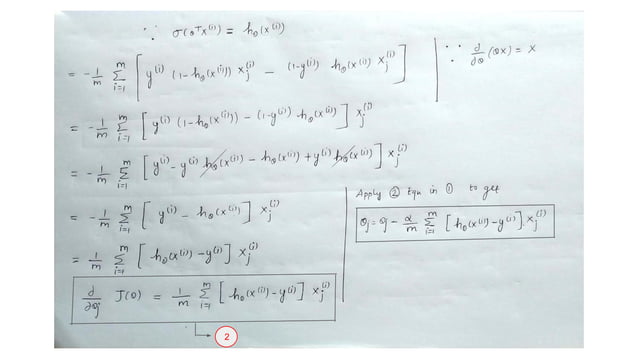 ∵ σ(θᵀx⁽ⁱ⁾) = hθ(x⁽ⁱ⁾)
= -1/m Σᵢ₌₁ᵐ [ y⁽ⁱ⁾ (1-hθ(x⁽ⁱ⁾)) xⱼ⁽ⁱ⁾ - (1-y⁽ⁱ⁾) hθ(x⁽ⁱ⁾) xⱼ⁽ⁱ⁾ ]
∵ d/dθ (θx) = x
= -1/m Σᵢ₌₁ᵐ [ y⁽ⁱ⁾ (1-hθ(x⁽ⁱ⁾)) - (1-y⁽ⁱ⁾) hθ(x⁽ⁱ⁾) ] xⱼ⁽ⁱ⁾
= -1/m Σᵢ₌₁ᵐ [ y⁽ⁱ⁾ - y⁽ⁱ⁾ hθ(x⁽ⁱ⁾) - hθ(x⁽ⁱ⁾) + y⁽ⁱ⁾ hθ(x⁽ⁱ⁾) ] xⱼ⁽ⁱ⁾
= -1/m Σᵢ₌₁ᵐ [ y⁽ⁱ⁾ - hθ(x⁽ⁱ⁾) ] xⱼ⁽ⁱ⁾
= 1/m Σᵢ₌₁ᵐ [ hθ(x⁽ⁱ⁾) - y⁽ⁱ⁾ ] xⱼ⁽ⁱ⁾
∂/∂θⱼ J(θ) = 1/m Σᵢ₌₁ᵐ [ hθ(x⁽ⁱ⁾) - y⁽ⁱ⁾ ] xⱼ⁽ⁱ⁾
2
Apply ② Equ in ① to get
θⱼ = θⱼ - α/m Σᵢ₌₁ᵐ [ hθ(x⁽ⁱ⁾) - y⁽ⁱ⁾ ] . xⱼ⁽ⁱ⁾